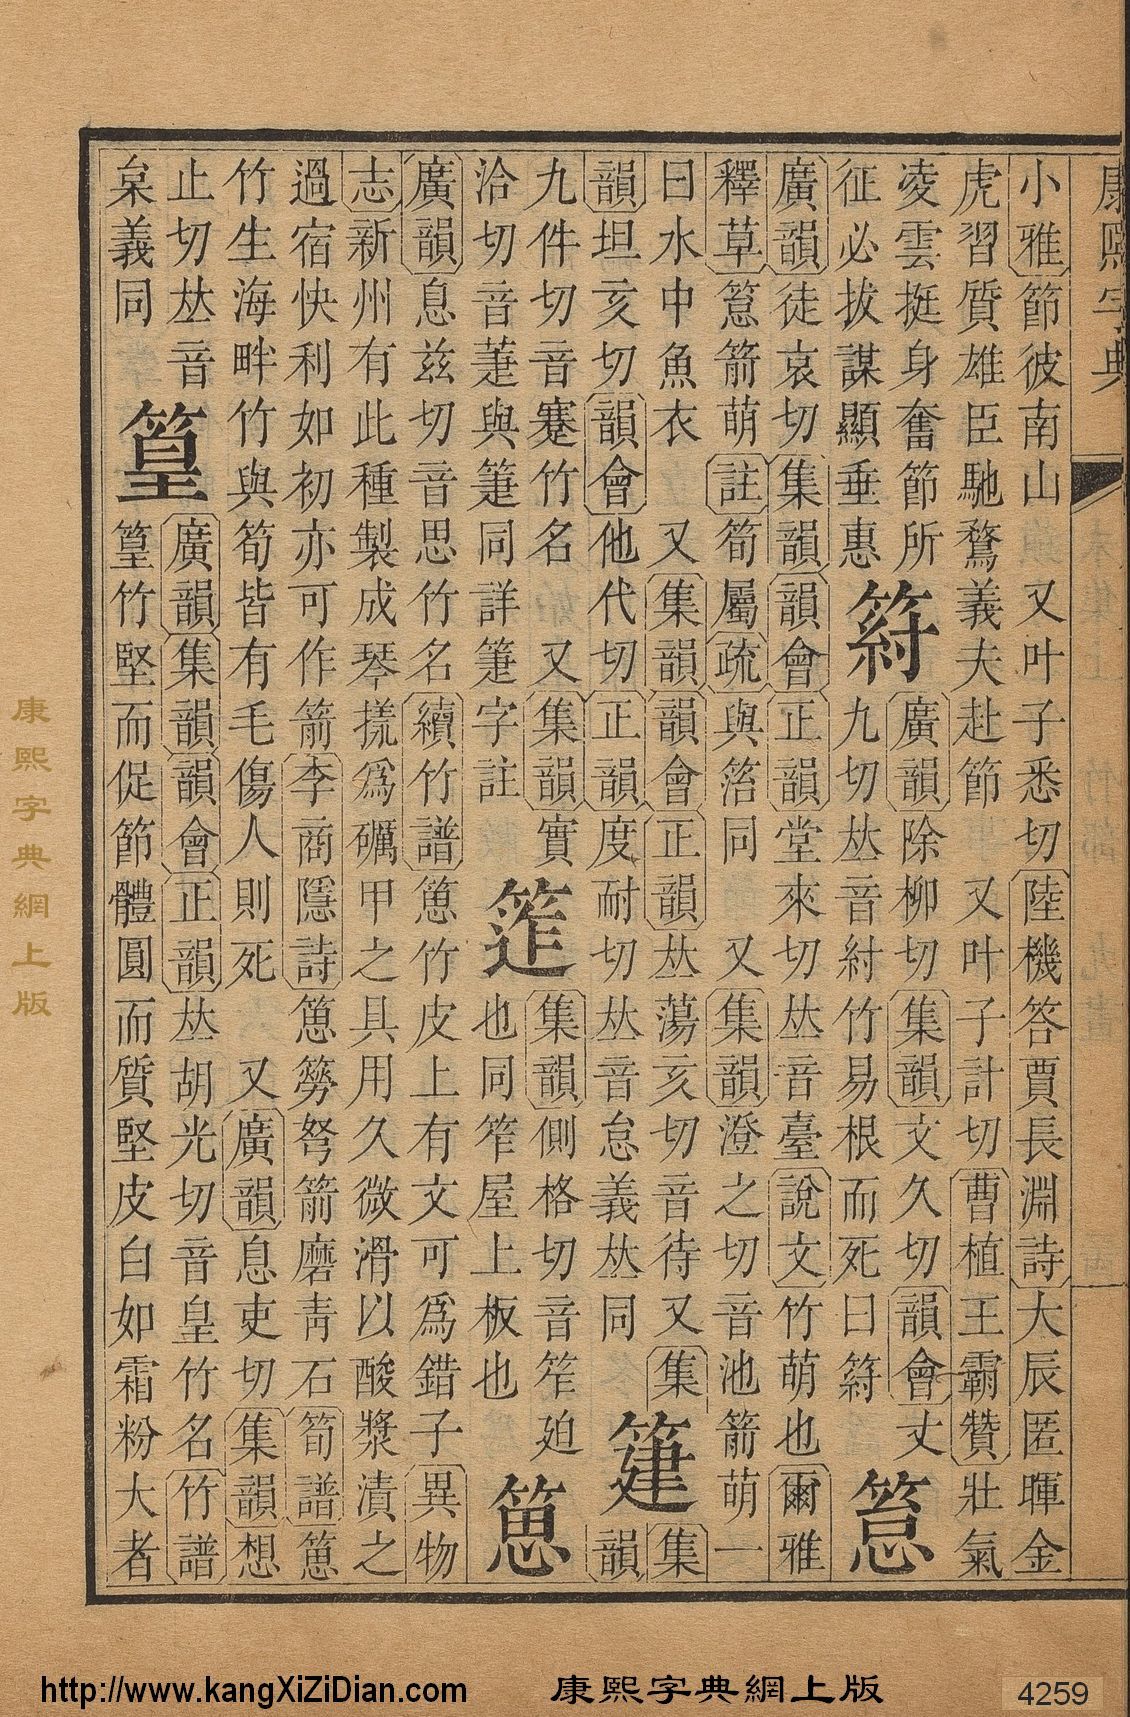 康熙字典
未集上　竹部　九畫
小雅節彼南山　又叶子悉切陸機答賈長淵詩大辰匿暉金
虎習質雄臣馳騖義夫赴節　又叶子計切曹植王霸贊壯氣
凌雲挺身奮節所
征必拔謀顯垂惠
䈙
廣韻除柳切集韻丈久切韻會丈
九切𠀤音紂竹易根而死曰䈙
䈚
廣韻徒哀切集韻韻會正韻堂來切𠀤音臺說文竹萌也爾雅
釋草䈚箭萌註筍屬疏與箈同　又集韻澄之切音池箭萌一
曰水中魚衣　又集韻韻會正韻𠀤蕩亥切音待又集
韻坦亥切韻會他代切正韻度耐切𠀤音怠義𠀤同
集韻
九件切音蹇竹名　又集韻實
洽切音萐與箑同詳箑字註
集韻側格切音笮迫
也同笮屋上板也
廣韻息兹切音思竹名續竹譜竹皮上有文可爲錯子異物
志新州有此種製成琴㨾爲礪甲之具用久微滑以酸漿漬之
過宿快利如初亦可作箭李商隱詩簩弩箭磨靑石筍譜
竹生海畔竹與筍皆有毛傷人則死　又廣韻息吏切集韻想
止切𠀤音
枲義同
篁
廣韻集韻韻會正韻𠀤胡光切音皇竹名竹譜
篁竹堅而促節體圓而質堅皮白如霜粉大者
康熙字典網上版
http://www.kangXiZiDian.com　康熙字典網上版　4259